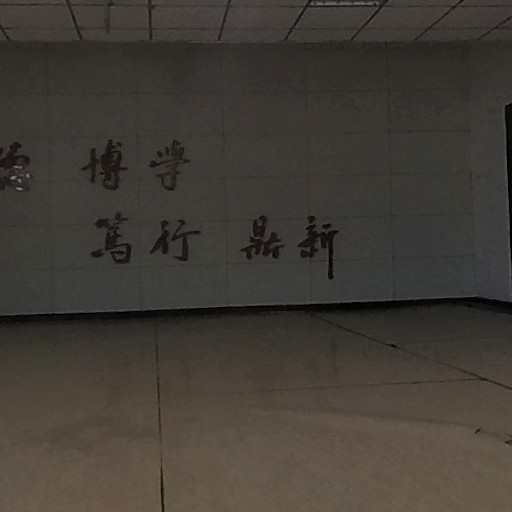 德 博学
笃行 鼎新